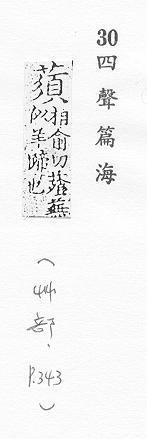 30四聲篇海
蕦相俞切蕵蕪
似羊蹄也
(艸部、P.343)